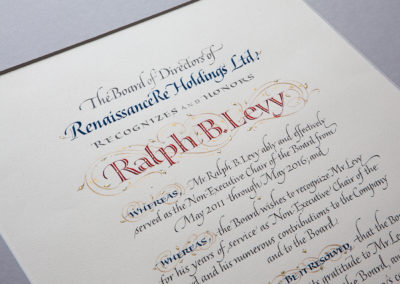 The Board of Directors of
RenaissanceRe Holdings Ltd.
RECOGNIZES AND HONORS
Ralph B. Levy
WHEREAS, Mr Ralph B. Levy ably and effectively
served as the Non-Executive Chair of the Board from
May 2011 through May 2016; and
WHEREAS, the Board wishes to recognize Mr Levy
for his years of service as Non-Executive Chair of the
and his numerous contributions to the Company
and to the Board:
BE IT RESOLVED, that the Boa
gratitude to Mr Le